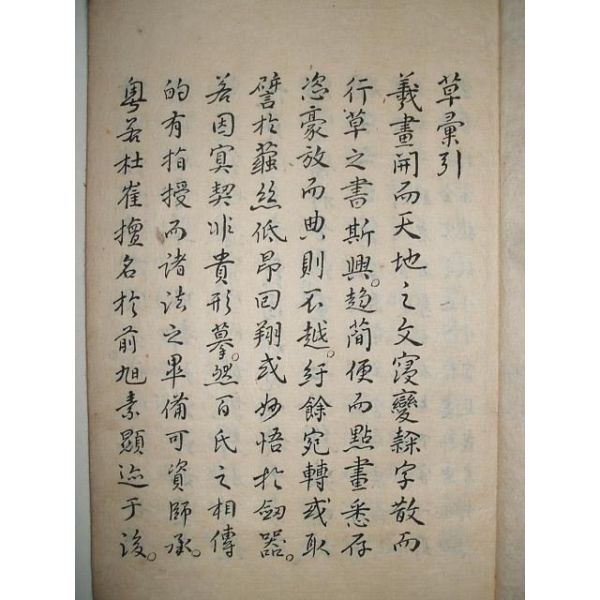 草彙引
羲畫開而天地之文寖變隸字散而
行草之書斯興。趨簡便而點畫悉存
恣豪放而典則不越。紆餘宛轉或取
譬於蠶絲低昂回翔或妙悟於劒器。
若因冥契非貴形摹。然百氏之相傳
的有指授而諸法之畢備可資師承。
粤若杜崔擅名於前旭素顯迹于後。